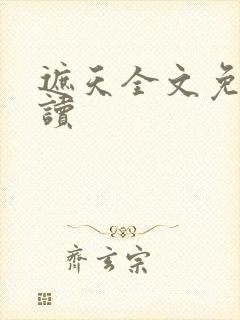 遮天全文免
讀
齊玄宗